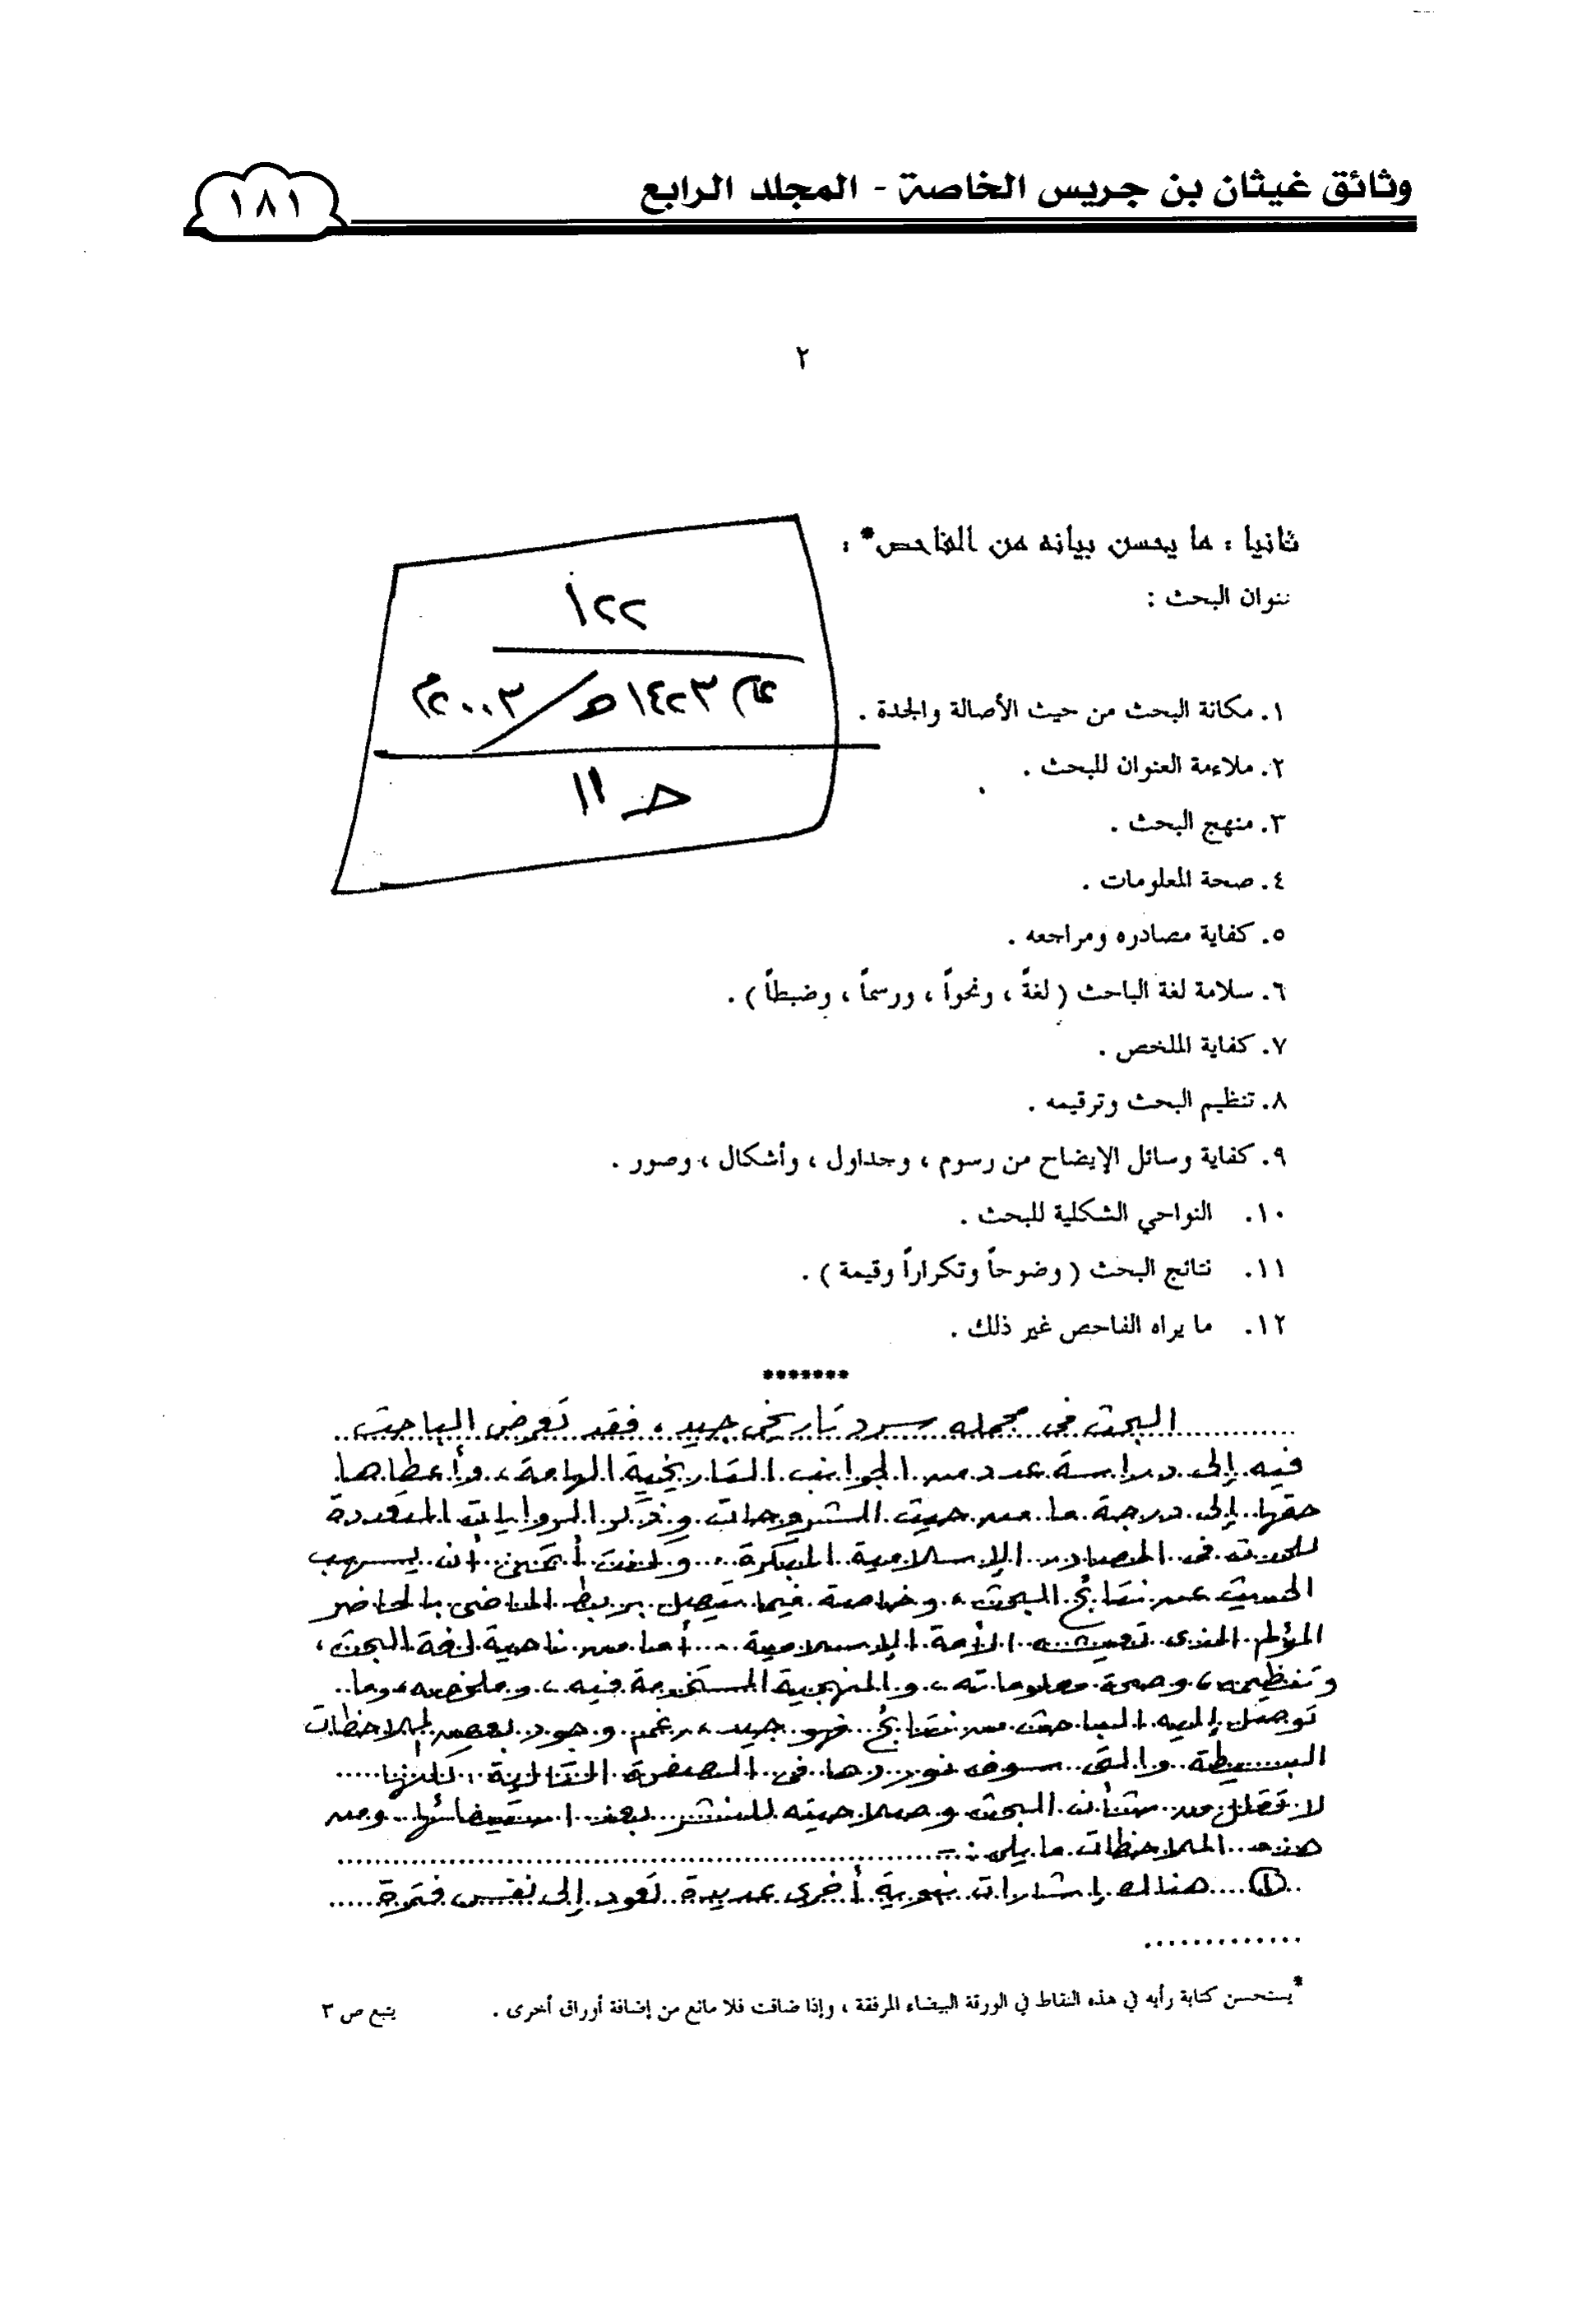 وثائق غيثان بن جريس الخاصة - المجلد الرابع
١٨١
٢
ثانيا : ما يحسن بيانه من الفاحص* :
ننوان البحث :
٢٢أ
عام ١٤٢٣هـ / ٢٠٠٣م
حـ ١١
١. مكانة البحث من حيث الأصالة والجدة .
٢. ملاءمة العنوان للبحث .
٣. منهج البحث .
٤. صحة المعلومات .
٥. كفاية مصادره ومراجعه .
٦. سلامة لغة الباحث ( لغةً ، ونحواً ، ورسماً ، وضبطاً ) .
٧. كفاية الملخص .
٨. تنظيم البحث وترقيمه .
٩. كفاية وسائل الإيضاح من رسوم ، وجداول ، وأشكال ، وصور .
١٠. النواحي الشكلية للبحث .
١١. نتائج البحث ( وضوحاً وتكراراً وقيمة ) .
١٢. ما يراه الفاحص غير ذلك .
*******
البحث فى مجمله سرد تاريخى جيد ، فقد تعرض الباحث
فيه إلى دراسة عدد من الجوانب التاريخية الهامة ، وأعطاها
حقها إلى درجة ما من حيث الشروحات وذكر الروايات المتعددة
للحدث فى المصادر الإسلامية المبكرة ، وكنت أتمنى أن يسهب
الحديث عن نتائج البحث ، وخاصة فيما يتصل بربط الماضى بالحاضر
المؤلم الذى تعيشه الأمة الإسلامية . أما من ناحية لغة البحث ،
وتنظيمه ، وصحة معلوماته ، والمنهجية المستخدمة فيه ، وملخصه ، وما
توصل إليه الباحث من نتائج فهو جيد ، رغم وجود بعض الملاحظات
البسيطة والتى سوف نوردها فى الصفحة التالية ، لكنها
لا تقلل من شأن البحث وصلاحيته للنشر بعد استيفائها . ومن
هذه الملاحظات ما يلى : ـ
(١) هناك إشارات نبوية أخرى عديدة تعود إلى نفس فترة
* يستحسن كتابة رأيه في هذه النقاط في الورقة البيضاء المرفقة ، وإذا ضاقت فلا مانع من إضافة أوراق أخرى .
يتبع ص ٣